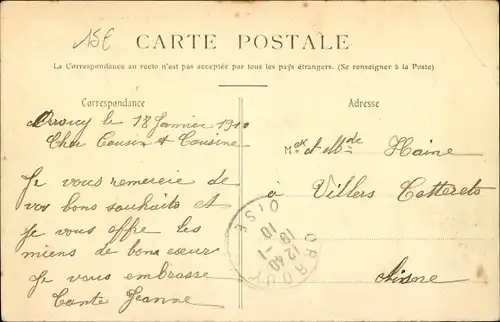 15€
CARTE POSTALE
La Correspondance au recto n'est pas acceptée par tous les pays étrangers. (Se renseigner à la Poste)
Correspondance
Orrouy le 18 Janvier 1910
Cher Cousin & Cousine
Je vous remercie de
vos bons souhaits et
Je vous offre les
miens de bon cœur
Je vous embrasse
Tante Jeanne
Adresse
Mr et Mde Haine
à Villers Cotterets
Aisne
ORROUY
OISE
12 40
18 -1
10